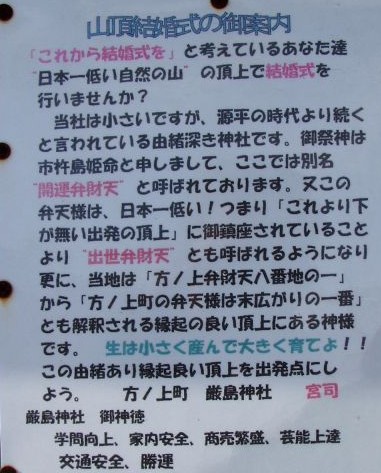 山頂結婚式の御案内
「これから結婚式を」と考えているあなた達
"日本一低い自然の山"の頂上で結婚式を
行いませんか?
当社は小さいですが、源平の時代より続く
と言われている由緒深き神社です。御祭神は
市杵島姫命と申しまして、ここでは別名
"開運弁財天"と呼ばれております。又この
弁天様は、日本一低い!つまり「これより下
が無い出発の頂上」に御鎮座されていること
より"出世弁財天"とも呼ばれるようになり
更に、当地は「方ノ上弁財天八番地の一」
から「方ノ上町の弁天様は末広がりの一番」
とも解釈される縁起の良い頂上にある神様
です。 生は小さく産んで大きく育てよ!!
この由緒あり縁起良い頂上を出発点にし
よう。 方ノ上町 厳島神社 宮司
厳島神社 御神徳
学問向上、家内安全、商売繁盛、芸能上達
交通安全、勝運